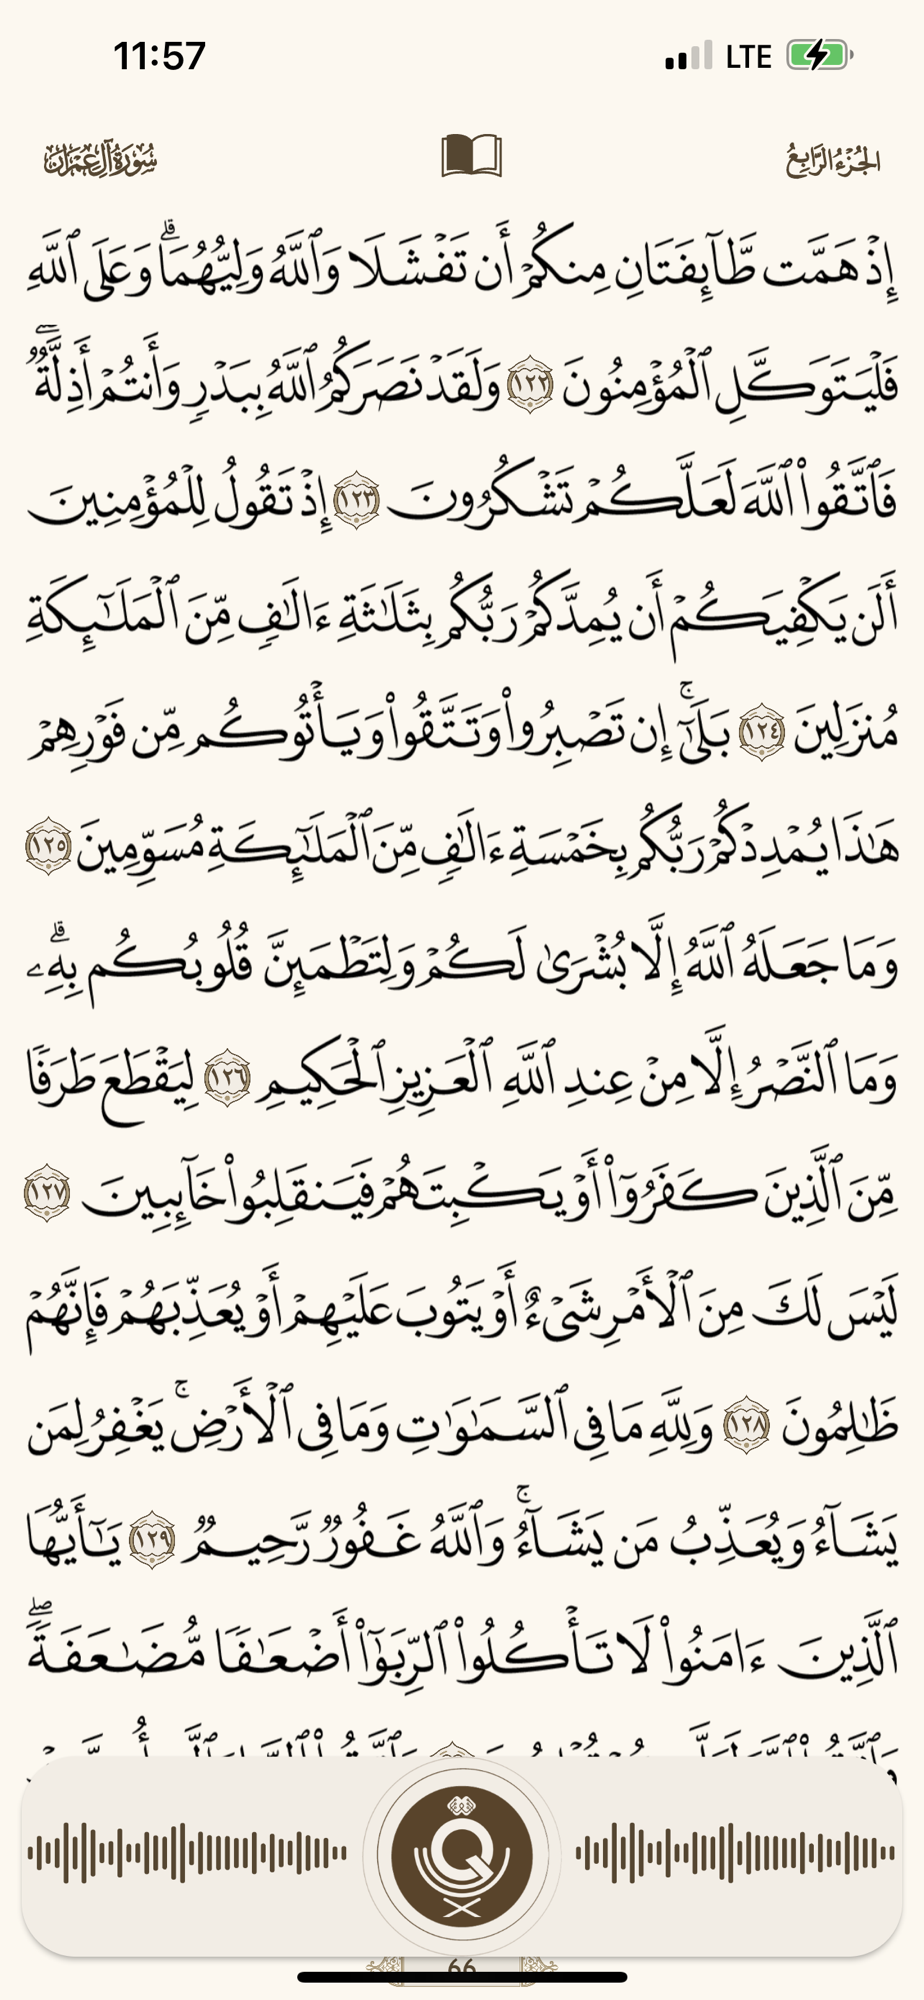 11:57 LTE
سُورَةُ آلِ عِمۡرَان الجُزۡءُ الرَّابِعُ
إِذۡ هَمَّت طَّآئِفَتَانِ مِنكُمۡ أَن تَفۡشَلَا وَٱللَّهُ وَلِيُّهُمَاۗ وَعَلَى ٱللَّهِ
فَلۡيَتَوَكَّلِ ٱلۡمُؤۡمِنُونَ ١٢٢ وَلَقَدۡ نَصَرَكُمُ ٱللَّهُ بِبَدۡرٖ وَأَنتُمۡ أَذِلَّةٞۖ
فَٱتَّقُواْ ٱللَّهَ لَعَلَّكُمۡ تَشۡكُرُونَ ١٢٣ إِذۡ تَقُولُ لِلۡمُؤۡمِنِينَ
أَلَن يَكۡفِيَكُمۡ أَن يُمِدَّكُمۡ رَبُّكُم بِثَلَٰثَةِ ءَالَٰفٖ مِّنَ ٱلۡمَلَٰٓئِكَةِ
مُنزَلِينَ ١٢٤ بَلَىٰٓۚ إِن تَصۡبِرُواْ وَتَتَّقُواْ وَيَأۡتُوكُم مِّن فَوۡرِهِمۡ
هَٰذَا يُمۡدِدۡكُمۡ رَبُّكُم بِخَمۡسَةِ ءَالَٰفٖ مِّنَ ٱلۡمَلَٰٓئِكَةِ مُسَوِّمِينَ ١٢٥
وَمَا جَعَلَهُ ٱللَّهُ إِلَّا بُشۡرَىٰ لَكُمۡ وَلِتَطۡمَئِنَّ قُلُوبُكُم بِهِۦۗ
وَمَا ٱلنَّصۡرُ إِلَّا مِنۡ عِندِ ٱللَّهِ ٱلۡعَزِيزِ ٱلۡحَكِيمِ ١٢٦ لِيَقۡطَعَ طَرَفٗا
مِّنَ ٱلَّذِينَ كَفَرُوٓاْ أَوۡ يَكۡبِتَهُمۡ فَيَنقَلِبُواْ خَآئِبِينَ ١٢٧
لَيۡسَ لَكَ مِنَ ٱلۡأَمۡرِ شَيۡءٌ أَوۡ يَتُوبَ عَلَيۡهِمۡ أَوۡ يُعَذِّبَهُمۡ فَإِنَّهُمۡ
ظَٰلِمُونَ ١٢٨ وَلِلَّهِ مَا فِي ٱلسَّمَٰوَٰتِ وَمَا فِي ٱلۡأَرۡضِۚ يَغۡفِرُ لِمَن
يَشَآءُ وَيُعَذِّبُ مَن يَشَآءُۚ وَٱللَّهُ غَفُورٞ رَّحِيمٞ ١٢٩ يَٰٓأَيُّهَا
ٱلَّذِينَ ءَامَنُواْ لَا تَأۡكُلُواْ ٱلرِّبَوٰٓاْ أَضۡعَٰفٗا مُّضَٰعَفَةٗۖ
66